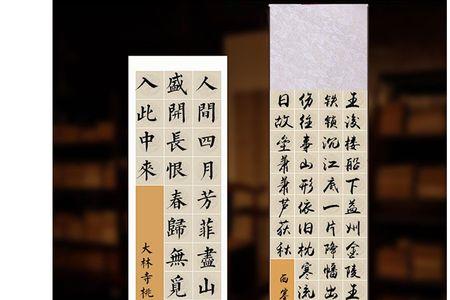 王浚楼船下益州金陵王
铁锁沉江底一片降幡出
伤往事山形依旧枕寒流
日故垒萧萧芦荻秋
西塞
人間四月芳菲盡山
盛開長恨春歸無覓
入此中來
大林寺桃